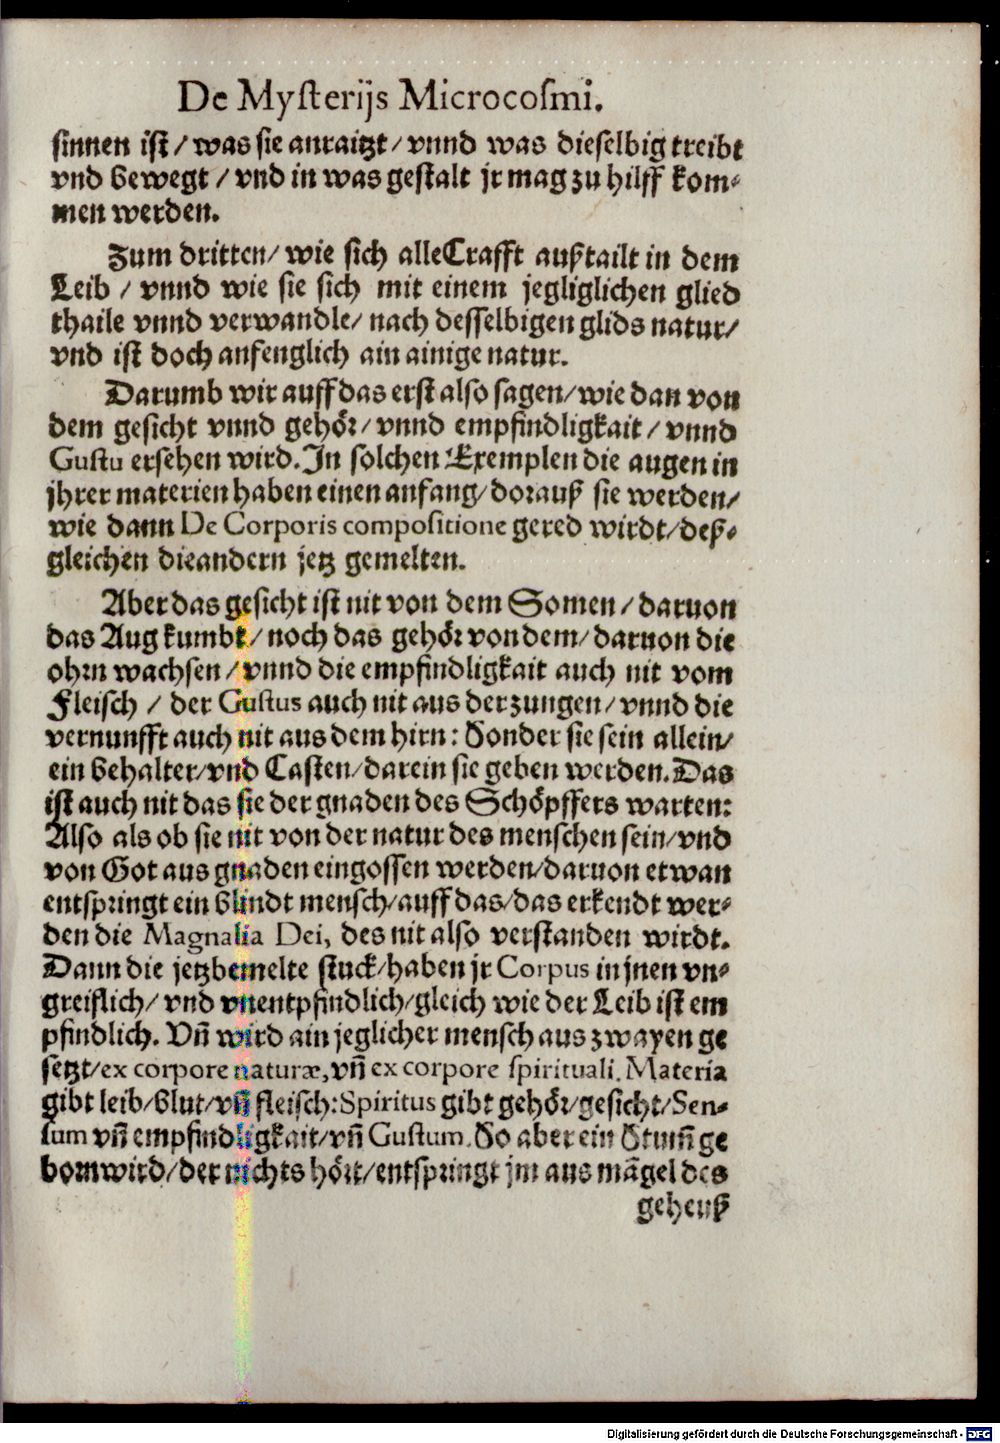 De Mysterijs Microcosmi.
sinnen ist / was sie anraitzt / vnnd was dieselbig treibt
vnd bewegt / vnd in was gestalt jr mag zu hilff kom-
men werden.
Zum dritten / wie sich alle Crafft außtailt in dem
Leib / vnnd wie sie sich mit einem jegliglichen glied
thaile vnnd verwandle / nach desselbigen glids natur /
vnd ist doch anfenglich ain ainige natur.
Darumb wir auff das erst also sagen / wie dan von
dem gesicht vnnd gehör / vnnd empfindligkait / vnnd
Gustu ersehen wird. In solchen Exemplen die augen in
jhrer materien haben einen anfang / dorauß sie werden /
wie dann De Corporis compositione gered wirdt / deß-
gleichen die andern jetz gemelten.
Aber das gesicht ist nit von dem Somen / daruon
das Aug kumbt / noch das gehör von dem / daruon die
ohrn wachsen / vnnd die empfindligkait auch nit vom
Fleisch / der Gustus auch nit aus der zungen / vnnd die
vernunfft auch nit aus dem hirn: Sonder sie sein allein /
ein behalter / vnd Casten / darein sie geben werden. Das
ist auch nit das sie der gnaden des Schöpffers warten:
Also als ob sie nit von der natur des menschen sein / vnd
von Got aus gnaden eingossen werden / daruon etwan
entspringt ein blindt mensch / auff das / das erkendt wer-
den die Magnalia Dei, des nit also verstanden wirdt.
Dann die jetzbemelte stuck / haben jr Corpus in jnen vn-
greiflich / vnd vnentpfindlich / gleich wie der Leib ist em
pfindlich. Vñ wird ain jeglicher mensch aus zwayen ge
setzt / ex corpore naturæ, vñ ex corpore spirituali. Materia
gibt leib / blut / vñ fleisch: Spiritus gibt gehör / gesicht / Sen-
sum vñ empfindligkait / vñ Gustum. So aber ein Stum̃ ge
born wird / der nichts hört / entspringt jm aus mãgel des
geheuß
Digitalisierung gefördert durch die Deutsche Forschungsgemeinschaft - DFG